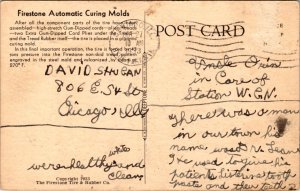 Firestone Automatic Curing Molds
After all the component parts of the tire have been
assembled—high stretch Gum-Dipped cords—plies—breaker
—two Extra Gum-Dipped Cord Plies under the Tread—
and the Tread Rubber itself—the tire is placed in a giant
curing mold.
In this final important operation, the tire is forced by
pressure into the Firestone non-skid tread pattern
engraved in the steel mold and vulcanized for
270°F.
POST CARD
DAVID SHUGAN
806 E. St
Chicago Ill
we're healthy and
white
clean
Copyright 1933
The Firestone Tire & Rubber Co.
Uncle Quin
in Care of
Station W.G.N.
There was a man
in our town his
name was
He used to give his
patients Listerine tooth
paste and their teeth